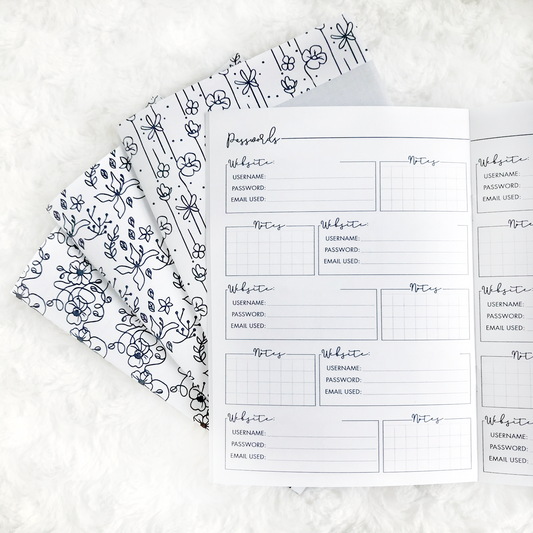 Passwords
Website:
USERNAME:
PASSWORD:
EMAIL USED:
Notes
Notes
Website:
USERNAME:
PASSWORD:
EMAIL USED:
Website:
USERNAME:
PASSWORD:
EMAIL USED:
Notes
Notes
Website:
USERNAME:
PASSWORD:
EMAIL USED:
Website:
USERNAME:
PASSWORD:
EMAIL USED:
Notes
Website:
USERNAME:
PASSWORD:
EMAIL USED:
Website:
USERNAME:
PASSWORD:
EMAIL USED:
Website:
USERNAME:
PASSWORD:
EMAIL USED: